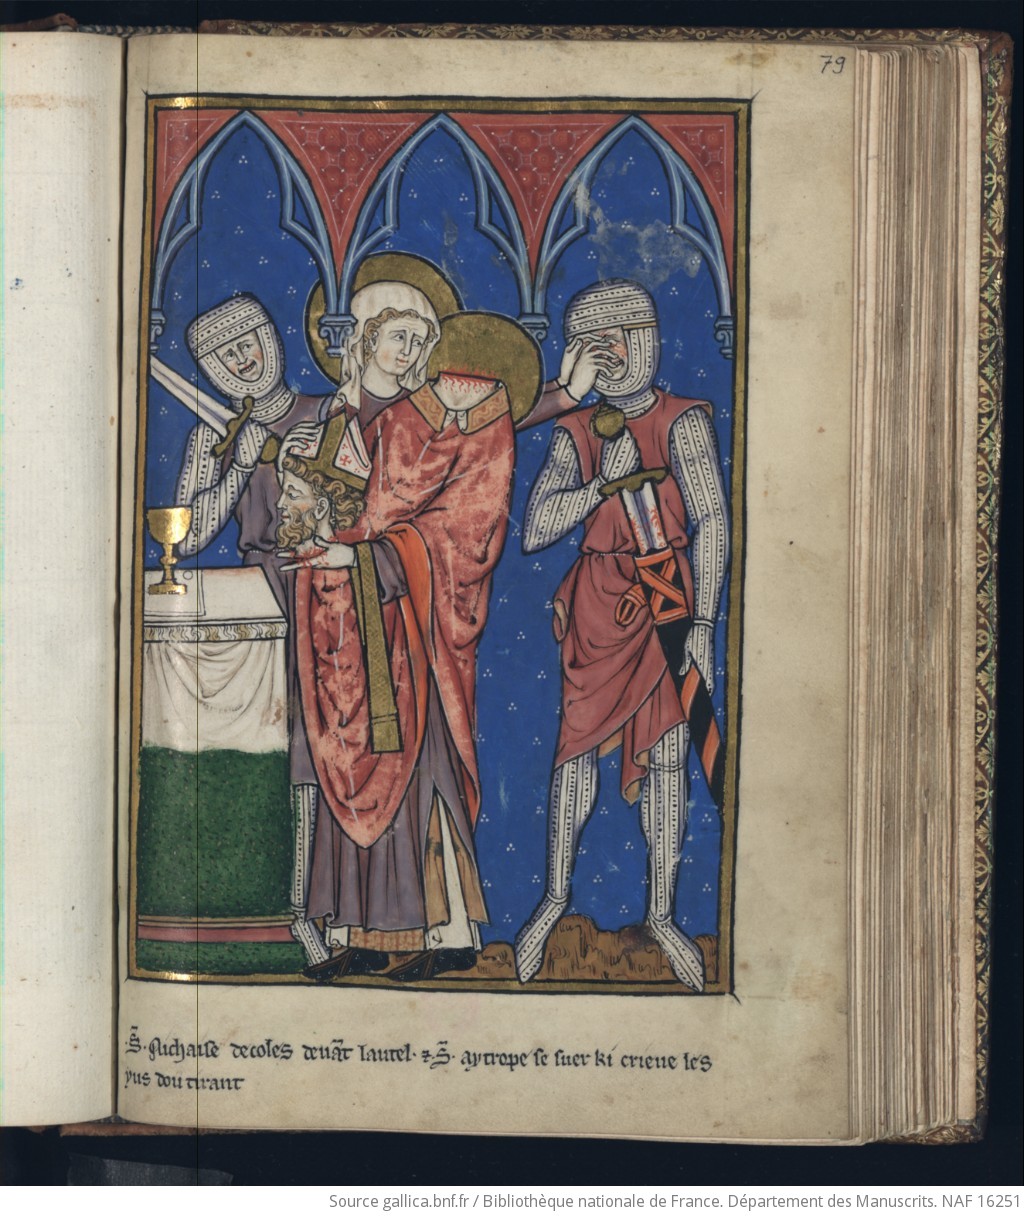 79
·S̃· Nichaise decoles deuāt lautel· ⁊ S̃· aytrope se suer ki crieue les
yus dou tirant
Source gallica.bnf.fr / Bibliothèque nationale de France. Département des Manuscrits. NAF 16251